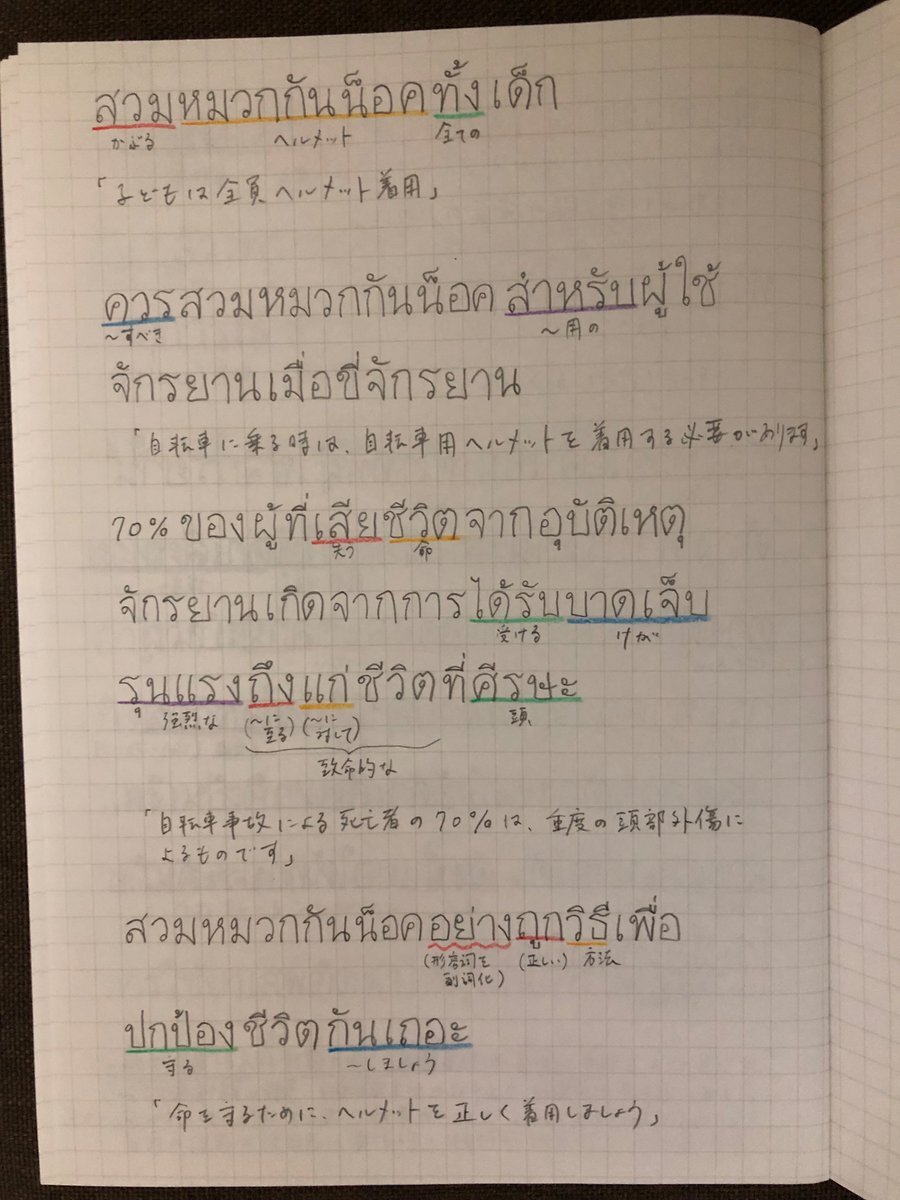 สวมหมวกกันน็อคทั้งเด็ก
かぶる ヘルメット 全ての
「子どもは全員ヘルメット着用」
ควรสวมหมวกกันน็อคสำหรับผู้ใช้
〜すべき 〜用の
จักรยานเมื่อขี่จักรยาน
「自転車に乗る時は、自転車用ヘルメットを着用する必要があります」
70%ของผู้ที่เสียชีวิตจากอุบัติเหตุ
失う 命
จักรยานเกิดจากการได้รับบาดเจ็บ
受ける けが
รุนแรงถึงแก่ชีวิตที่ศีรษะ
強烈な (〜に至る) (〜に対して) 頭
致命的な
「自転車事故による死亡者の70%は、重度の頭部外傷に
よるものです」
สวมหมวกกันน็อคอย่างถูกวิธีเพื่อ
(形容詞を副詞化) (正しい) 方法
ปกป้องชีวิตกันเถอะ
守る 〜しましょう
「命を守るために、ヘルメットを正しく着用しましょう」